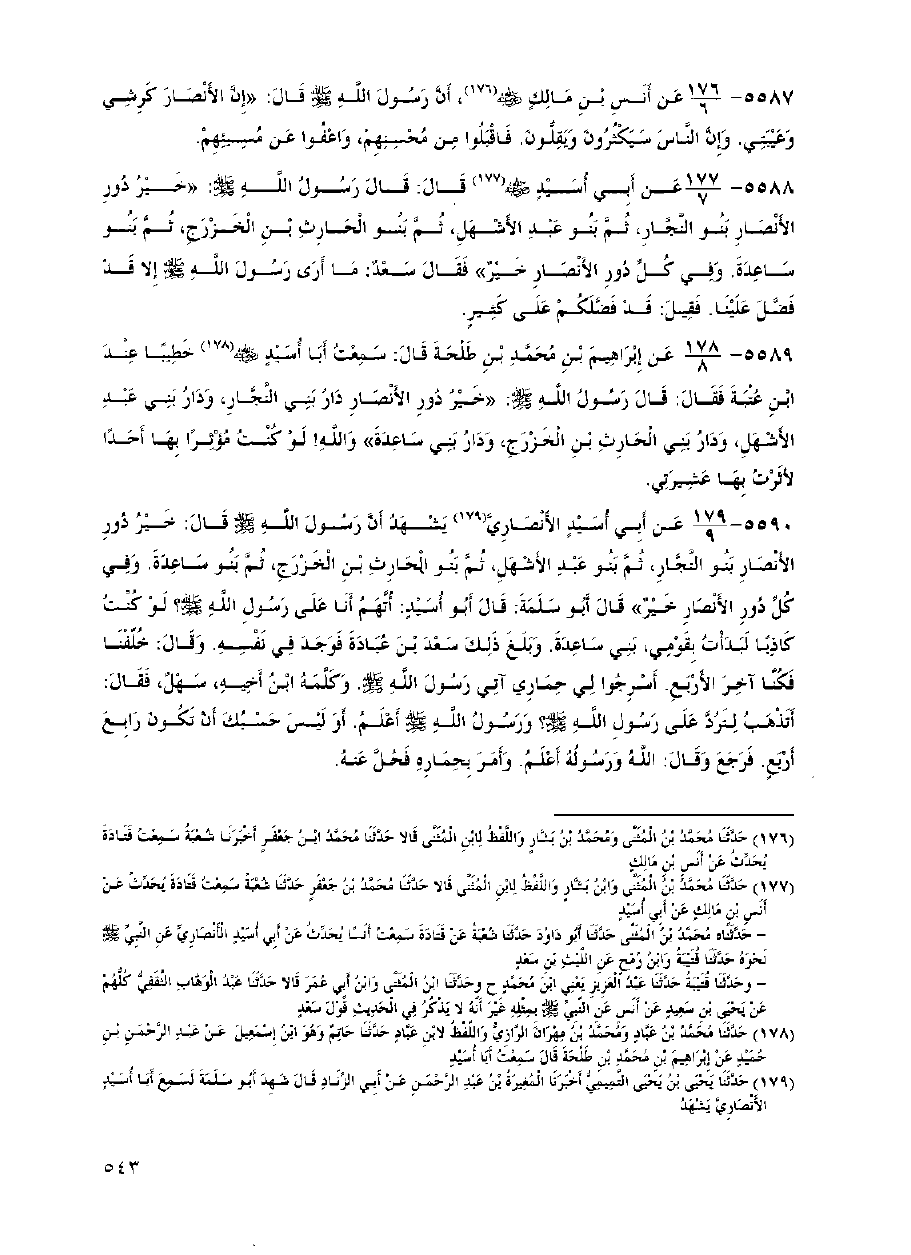 ٥٥٨٧- ١٧٦/٦ عَن أَنَسِ بْنِ مَالِكٍ ﷺ(١٧٦)، أَنَّ رَسُولَ اللَّهِ ﷺ قَالَ: «إِنَّ الأَنْصَارَ كَرِشِي
وَعَيْبَتِي. وَإِنَّ النَّاسَ سَيَكْثُرُونَ وَيَقِلُّونَ. فَاقْبَلُوا مِن مُحْسِنِهِمْ، وَاعْفُوا عَن مُسِيئِهِمْ.
٥٥٨٨- ١٧٧/٧ عَن أَبِي أُسَيْدٍ ﷺ(١٧٧) قَالَ: قَالَ رَسُولُ اللَّهِ ﷺ: «خَيْرُ دُورِ
الأَنْصَارِ بَنُو النَّجَّارِ، ثُمَّ بَنُو عَبْدِ الأَشْهَلِ، ثُمَّ بَنُو الْحَارِثِ بْنِ الْخَزْرَجِ، ثُمَّ بَنُو
سَاعِدَةَ. وَفِي كُلِّ دُورِ الأَنْصَارِ خَيْرٌ» فَقَالَ سَعْدٌ: مَا أَرَى رَسُولَ اللَّهِ ﷺ إِلا قَدْ
فَضَّلَ عَلَيْنَا. فَقِيلَ: قَدْ فَضَّلَكُمْ عَلَى كَثِيرٍ.
٥٥٨٩- ١٧٨/٨ عَن إِبْرَاهِيمَ بْنِ مُحَمَّدِ بْنِ طَلْحَةَ قَالَ: سَمِعْتُ أَبَا أُسَيْدٍ ﷺ(١٧٨) خَطِيبًا عِنْدَ
ابْنِ عُتْبَةَ فَقَالَ: قَالَ رَسُولُ اللَّهِ ﷺ: «خَيْرُ دُورِ الأَنْصَارِ دَارُ بَنِي النَّجَّارِ، وَدَارُ بَنِي عَبْدِ
الأَشْهَلِ، وَدَارُ بَنِي الْحَارِثِ بْنِ الْخَزْرَجِ، وَدَارُ بَنِي سَاعِدَةَ» وَاللَّهِ! لَوْ كُنْتُ مُؤْثِرًا بِهَا أَحَدًا
لأَثَرْتُ بِهَا عَشِيرَتِي.
٥٥٩٠- ١٧٩/٩ عَن أَبِي أُسَيْدٍ الأَنْصَارِيَّ(١٧٩) يَشْهَدُ أَنَّ رَسُولَ اللَّهِ ﷺ قَالَ: خَيْرُ دُورِ
الأَنْصَارِ بَنُو النَّجَّارِ، ثُمَّ بَنُو عَبْدِ الأَشْهَلِ، ثُمَّ بَنُو الْحَارِثِ بْنِ الْخَزْرَجِ، ثُمَّ بَنُو سَاعِدَةَ. وَفِي
كُلِّ دُورِ الأَنْصَارِ خَيْرٌ» قَالَ أَبُو سَلَمَةَ: قَالَ أَبُو أُسَيْدٍ: أُتَّهَمُ أَنَا عَلَى رَسُولِ اللَّهِ ﷺ؟ لَوْ كُنْتُ
كَاذِبًا لَبَدَأْتُ بِقَوْمِي، بَنِي سَاعِدَةَ. وَبَلَغَ ذَلِكَ سَعْدَ بْنَ عُبَادَةَ فَوَجَدَ فِي نَفْسِهِ. وَقَالَ: خُلِّفْنَا
فَكُنَّا آخِرَ الأَرْبَعِ. أَسْرِجُوا لِي حِمَارِي آتِي رَسُولَ اللَّهِ ﷺ. وَكَلَّمَهُ ابْنُ أَخِيهِ، سَهْلٌ، فَقَالَ:
أَتَذْهَبُ لِتَرُدَّ عَلَى رَسُولِ اللَّهِ ﷺ؟ وَرَسُولُ اللَّهِ ﷺ أَعْلَمُ. أَوَ لَيْسَ حَسْبُكَ أَنْ تَكُونَ رَابِعَ
أَرْبَعٍ. فَرَجَعَ وَقَالَ: اللَّهُ وَرَسُولُهُ أَعْلَمُ. وَأَمَرَ بِحِمَارِهِ فَحُلَّ عَنْهُ.
(١٧٦) حَدَّثَنَا مُحَمَّدُ بْنُ الْمُثَنَّى وَمُحَمَّدُ بْنُ بَشَّارٍ وَاللَّفْظُ لِابْنِ الْمُثَنَّى قَالا حَدَّثَنَا مُحَمَّدُ ابْنُ جَعْفَرٍ أَخْبَرَنَا شُعْبَةُ سَمِعْتُ قَتَادَةَ
يُحَدِّثُ عَنْ أَنَسِ بْنِ مَالِكٍ
(١٧٧) حَدَّثَنَا مُحَمَّدُ بْنُ الْمُثَنَّى وَابْنُ بَشَّارٍ وَاللَّفْظُ لِابْنِ الْمُثَنَّى قَالا حَدَّثَنَا مُحَمَّدُ بْنُ جَعْفَرٍ حَدَّثَنَا شُعْبَةُ سَمِعْتُ قَتَادَةَ يُحَدِّثُ عَنْ
أَنَسِ بْنِ مَالِكٍ عَنْ أَبِي أُسَيْدٍ
- حَدَّثَنَاه مُحَمَّدُ بْنُ الْمُثَنَّى حَدَّثَنَا أَبُو دَاوُدَ حَدَّثَنَا شُعْبَةُ عَنْ قَتَادَةَ سَمِعْتُ أَنَسًا يُحَدِّثُ عَنْ أَبِي أُسَيْدٍ الْأَنْصَارِيِّ عَنِ النَّبِيِّ ﷺ
نَحْوَهُ حَدَّثَنَا قُتَيْبَةُ وَابْنُ رُمْحٍ عَنِ اللَّيْثِ بْنِ سَعْدٍ
- وحَدَّثَنَا قُتَيْبَةُ حَدَّثَنَا عَبْدُ الْعَزِيزِ يَعْنِي ابْنَ مُحَمَّدٍ ح وحَدَّثَنَا ابْنُ الْمُثَنَّى وَابْنُ أَبِي عُمَرَ قَالا حَدَّثَنَا عَبْدُ الْوَهَّابِ الثَّقَفِيُّ كُلُّهُمْ
عَنْ يَحْيَى بْنِ سَعِيدٍ عَنْ أَنَسٍ عَنِ النَّبِيِّ ﷺ بِمِثْلِهِ غَيْرَ أَنَّهُ لا يَذْكُرُ فِي الْحَدِيثِ قَوْلَ سَعْدٍ
(١٧٨) حَدَّثَنَا مُحَمَّدُ بْنُ عَبَّادٍ وَمُحَمَّدُ بْنُ مِهْرَانَ الرَّازِيُّ وَاللَّفْظُ لابْنِ عَبَّادٍ حَدَّثَنَا حَاتِمٌ وَهُوَ ابْنُ إِسْمَعِيلَ عَنْ عَبْدِ الرَّحْمَنِ بْنِ
حُمَيْدٍ عَنْ إِبْرَاهِيمَ بْنِ مُحَمَّدِ بْنِ طَلْحَةَ قَالَ سَمِعْتُ أَبَا أُسَيْدٍ
(١٧٩) حَدَّثَنَا يَحْيَى بْنُ يَحْيَى التَّمِيمِيُّ أَخْبَرَنَا الْمُغِيرَةُ بْنُ عَبْدِ الرَّحْمَنِ عَنْ أَبِي الزِّنَادِ قَالَ شَهِدَ أَبُو سَلَمَةَ لَسَمِعَ أَبَا أُسَيْدٍ
الأَنْصَارِيَّ يَشْهَدُ
٥٤٣